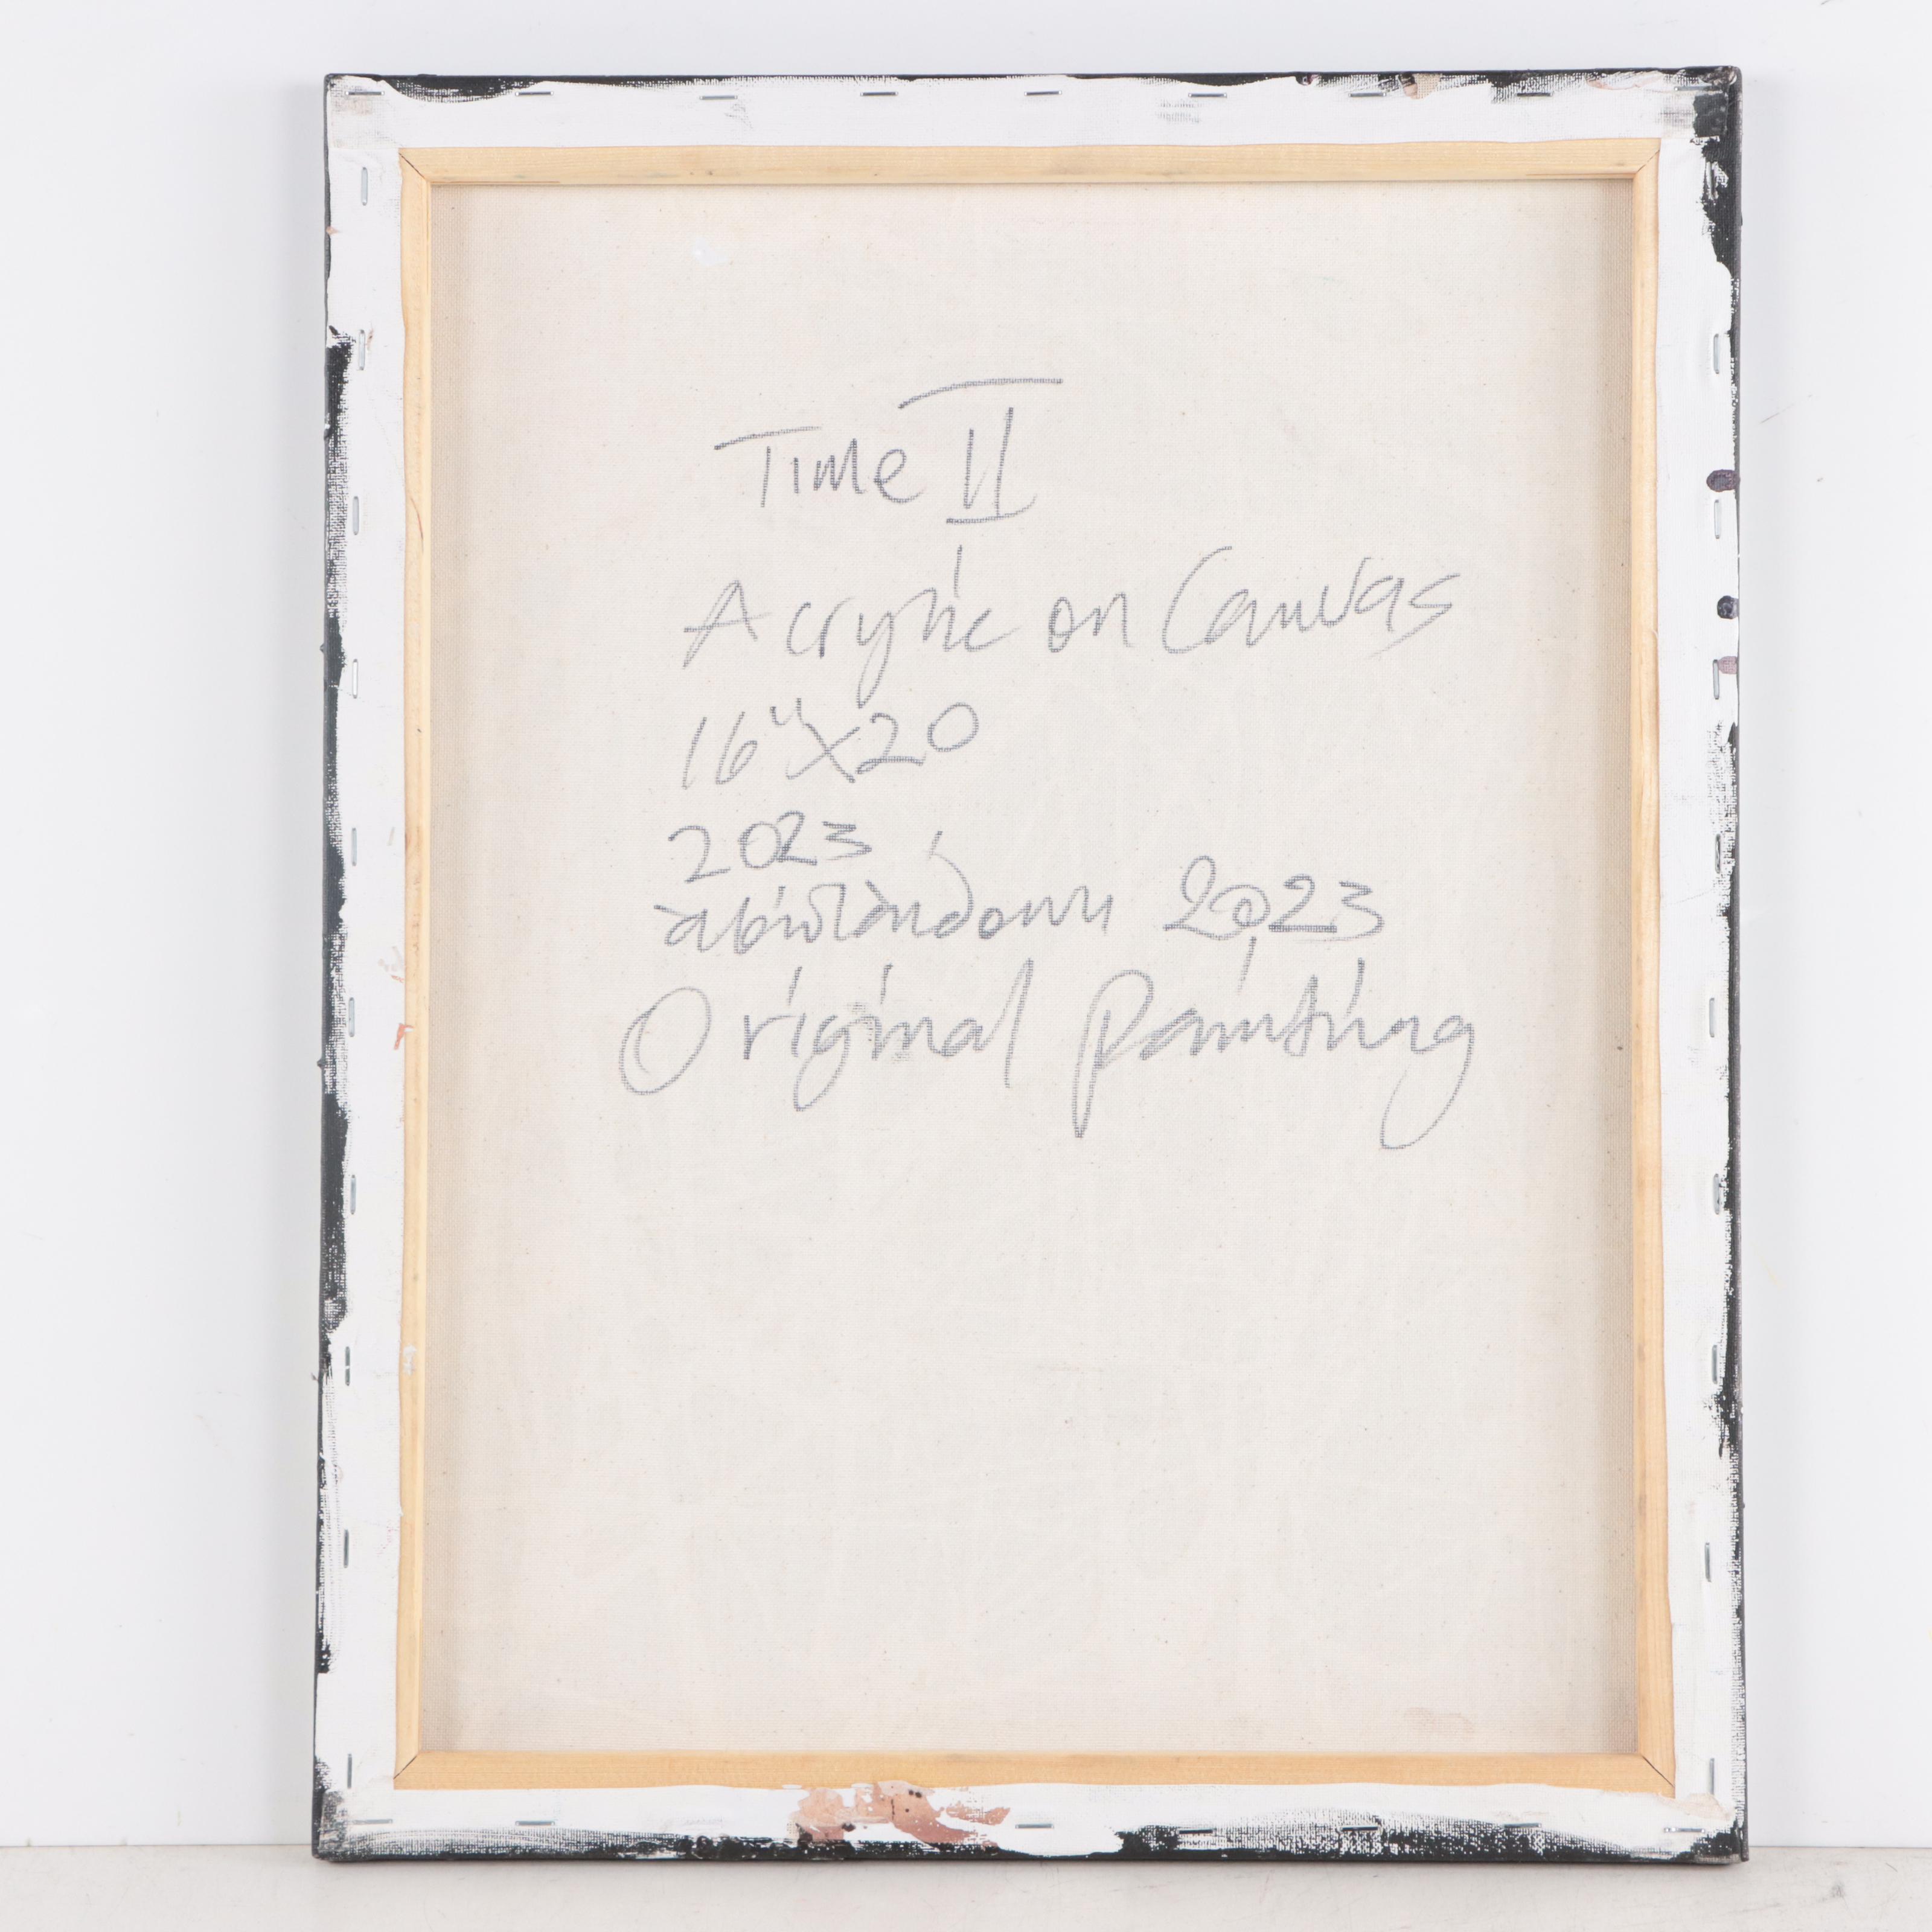 Time II
Acrylic on Canvas
16" X 20
2023
2023
Original Painting